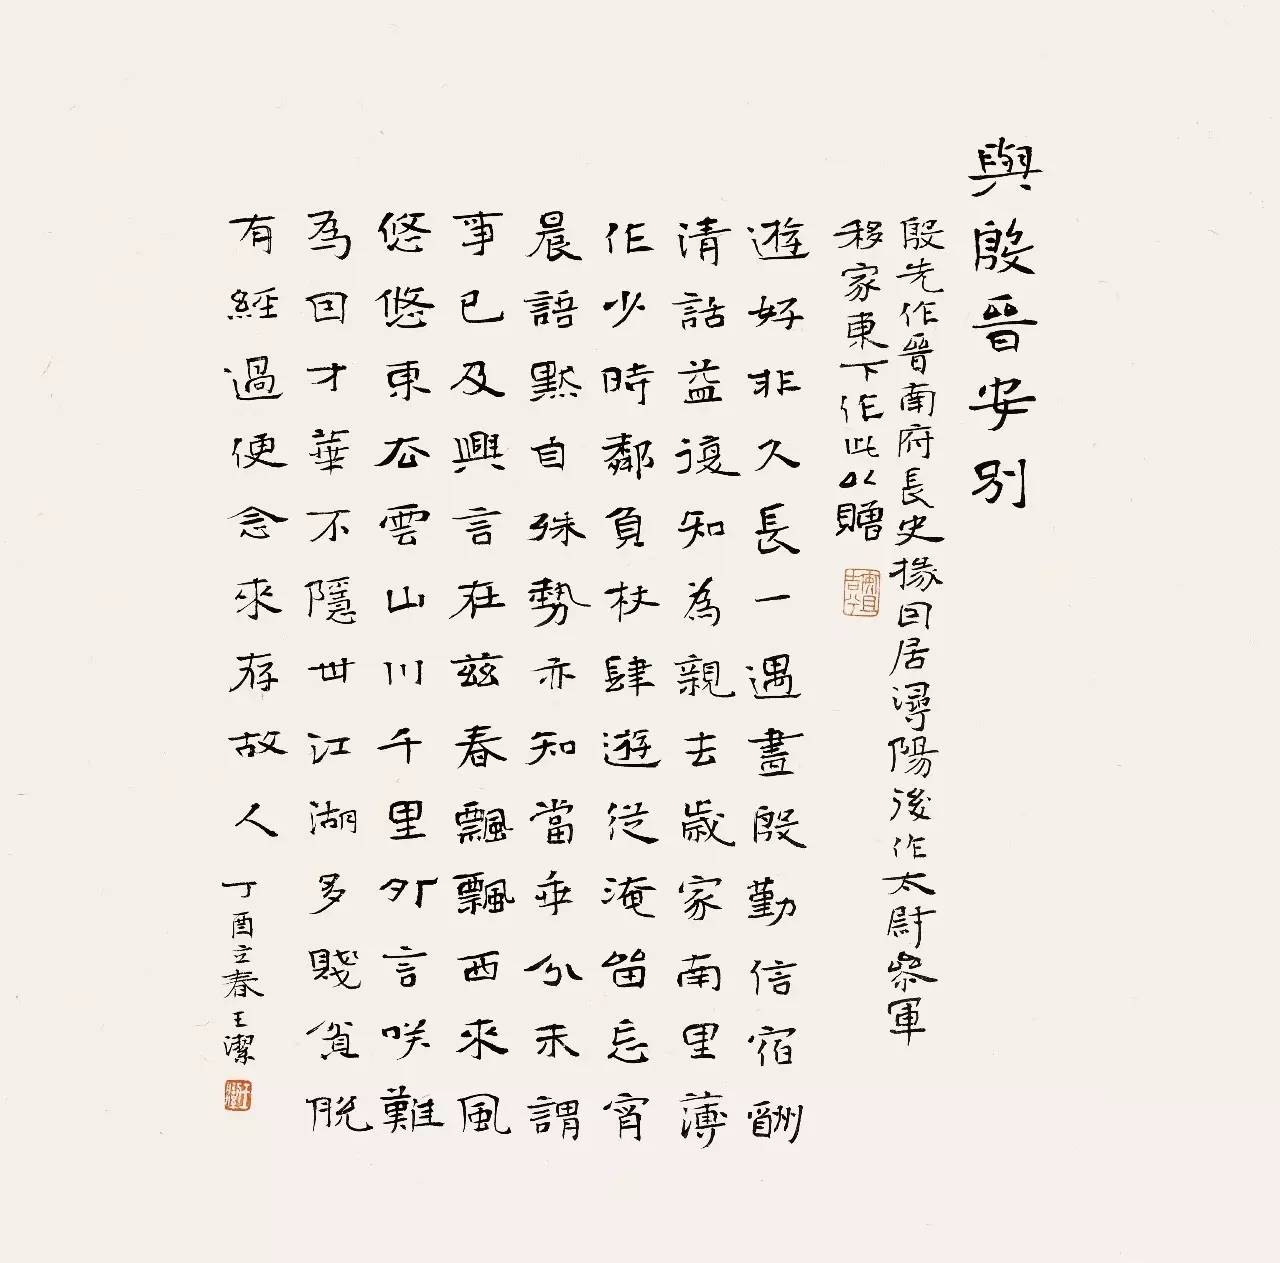 與殷晉安別
殷先作晉南府長史掾因居潯陽後作太尉參軍
移家東下作此以贈
遊好非久長一遇盡殷勤信宿酬
清話益復知為親去歲家南里薄
作少時鄰負杖肆遊從淹留忘宵
晨語默自殊勢亦知當乖分未謂
事已及興言在茲春飄飄西來風
悠悠東去雲山川千里外言咲難
為因才華不隱世江湖多賤貧脫
有經過便念來存故人
丁酉立春王潔